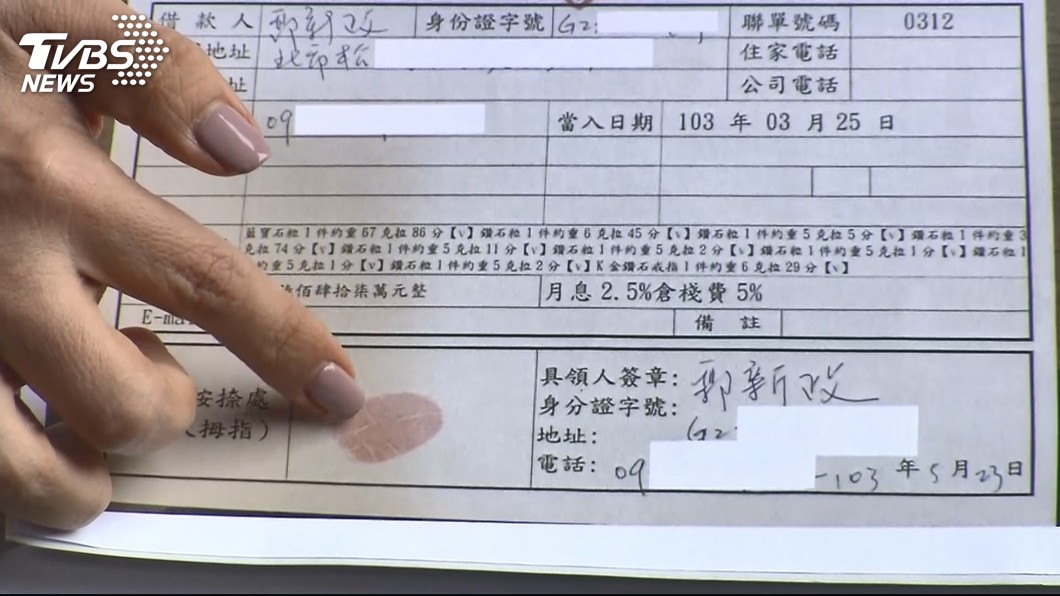 TVBS
NEWS
借款人 郭新政 身份證字號 G2 聯單號碼 0312
地址 北市松 住家電話
址 公司電話
09 當入日期 103 年 03 月 25 日
藍寶石粒1件約重67克拉86分【v】鑽石粒1件約重6克拉45分【v】鑽石粒1件約重5克拉5分【v】鑽石粒1件約重3
克拉74分【v】鑽石粒1件約重5克拉11分【v】鑽石粒1件約重5克拉2分【v】鑽石粒1件約重5克拉1分【v】鑽石粒1
約重5克拉1分【v】鑽石粒1件約重5克拉2分【v】K金鑽石戒指1件約重6克拉29分【v】
佰肆拾柒萬元整 月息 2.5%倉棧費 5%
E-mai 備註
具領人簽章：郭新政
按捺處 身分證字號：G2
拇指） 地址：
電話：09 103 年 5 月 23 日